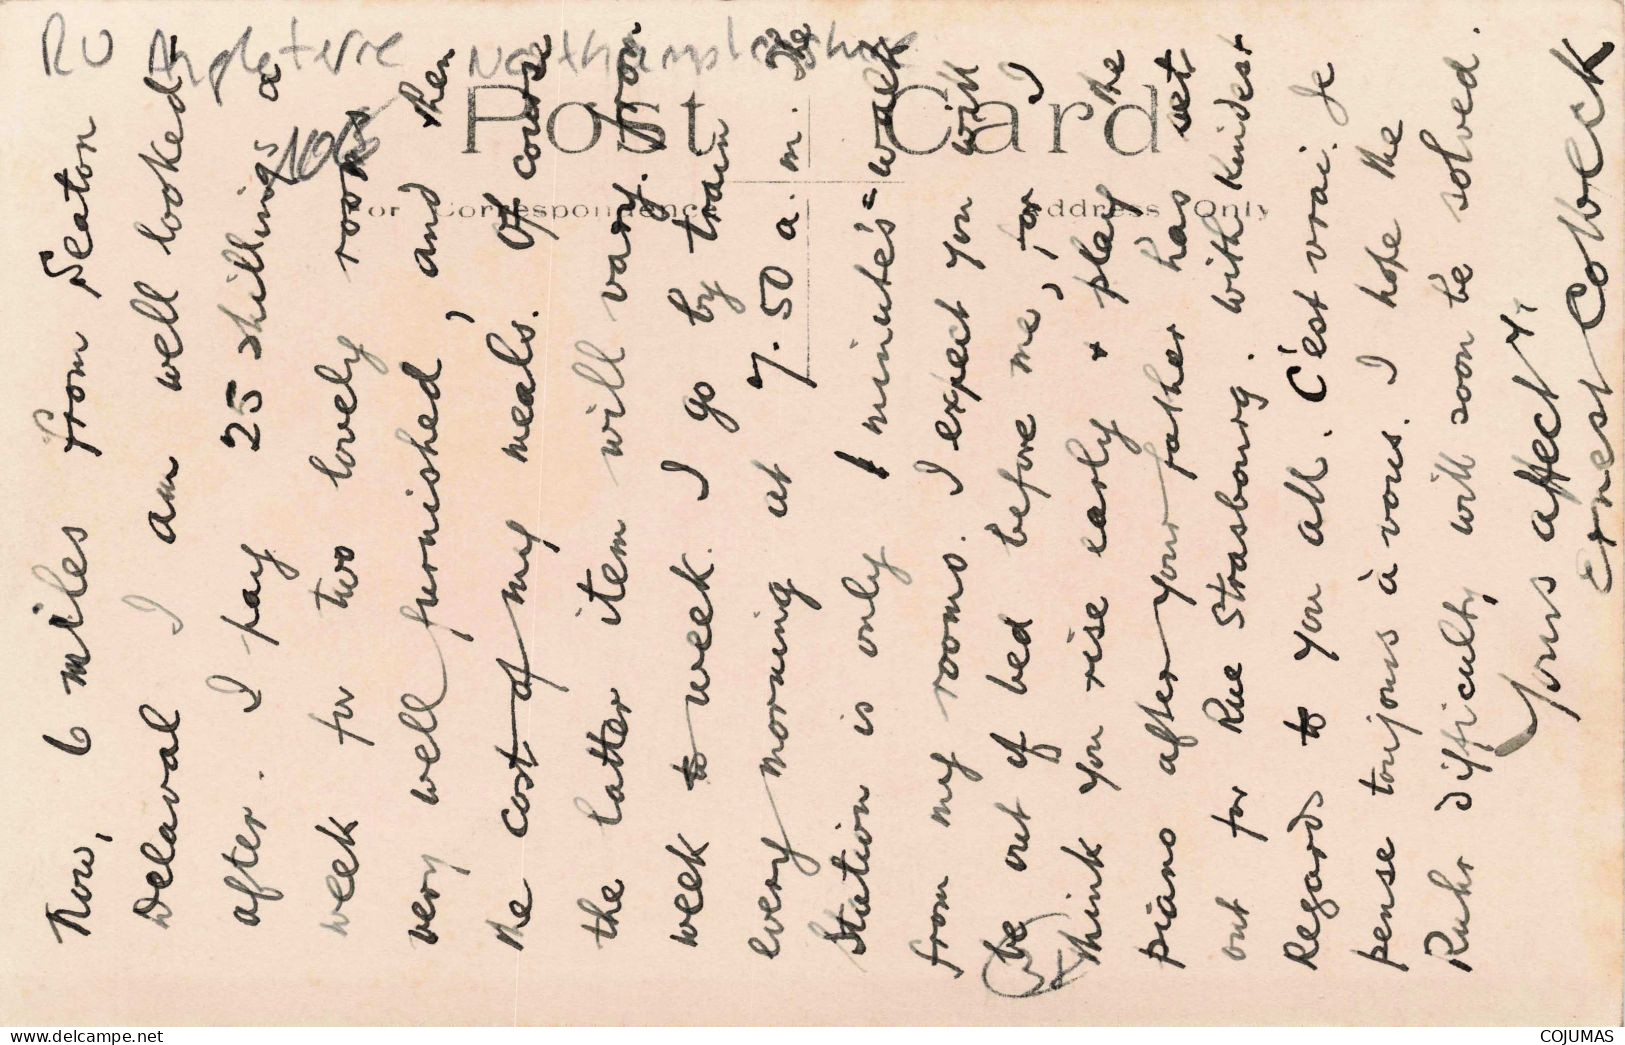 RU Angleterre Northamptonshire
Post Card
For Correspondence
Address Only
Now, 6 miles from Seaton
Delaval I am well looked-
after. I pay 25 shillings a
week for two lovely rooms
very well furnished, and then
the cost of my meals. Of course
the latter item will vary from
week to week. I go by train
every morning at 7.50 a.m. The
station is only 1 minute's walk
from my rooms. I expect you will
be out of bed before me, for I
think you rise early & play the
piano after your father has set
out for Rue Strasbourg. With kindest
regards to you all. C'est vrai. Je
pense toujours à vous. I hope the
Ruhr difficulty will soon be solved.
Yours affectly
Ernest Colbeck
COJUMAS